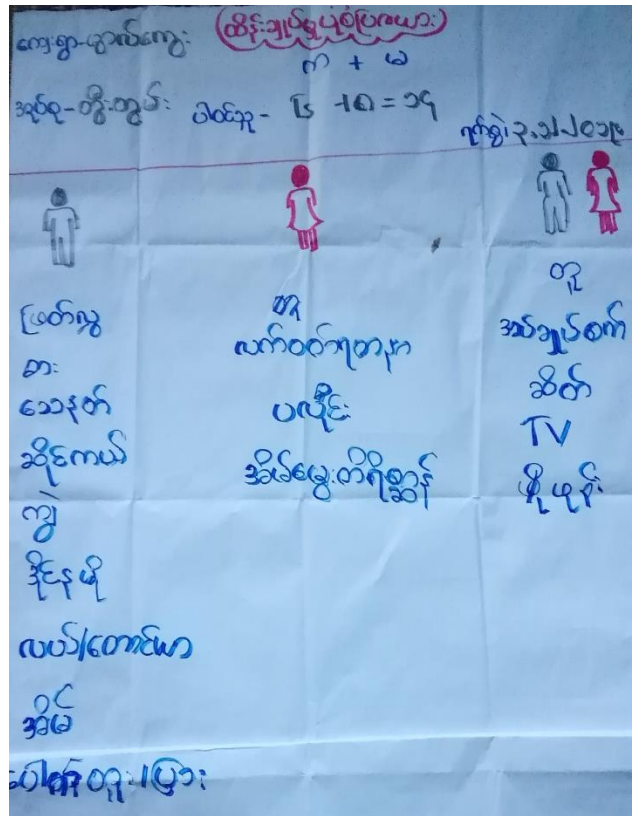 ကျေးရွာ-ယွာလ်ကျွေး
(ထိန်းချုပ်မှုပုံစံပြဇယား)
ကာ + မ
အုပ်စု-တွီးတွမ်း
ပါဝင်သူ-
= ၁၄
ရက်စွဲ၊ ၃.၁၂.၂၀၁၉
ဖြတ်လွှ
ဓား
သေနတ်
ဆိုင်ကယ်
ကျွဲ
ဒိုင်နမို
လယ်/တောင်ယာ
အိမ်
ပေါက်တူးပြား
တူ
လက်ဝတ်ရတနာ
ပလိုင်း
အိမ်မွေးတိရိစ္ဆာန်
တူ
အပ်ချုပ်စက်
ဆိတ်
TV
ဖိုဖုန်း